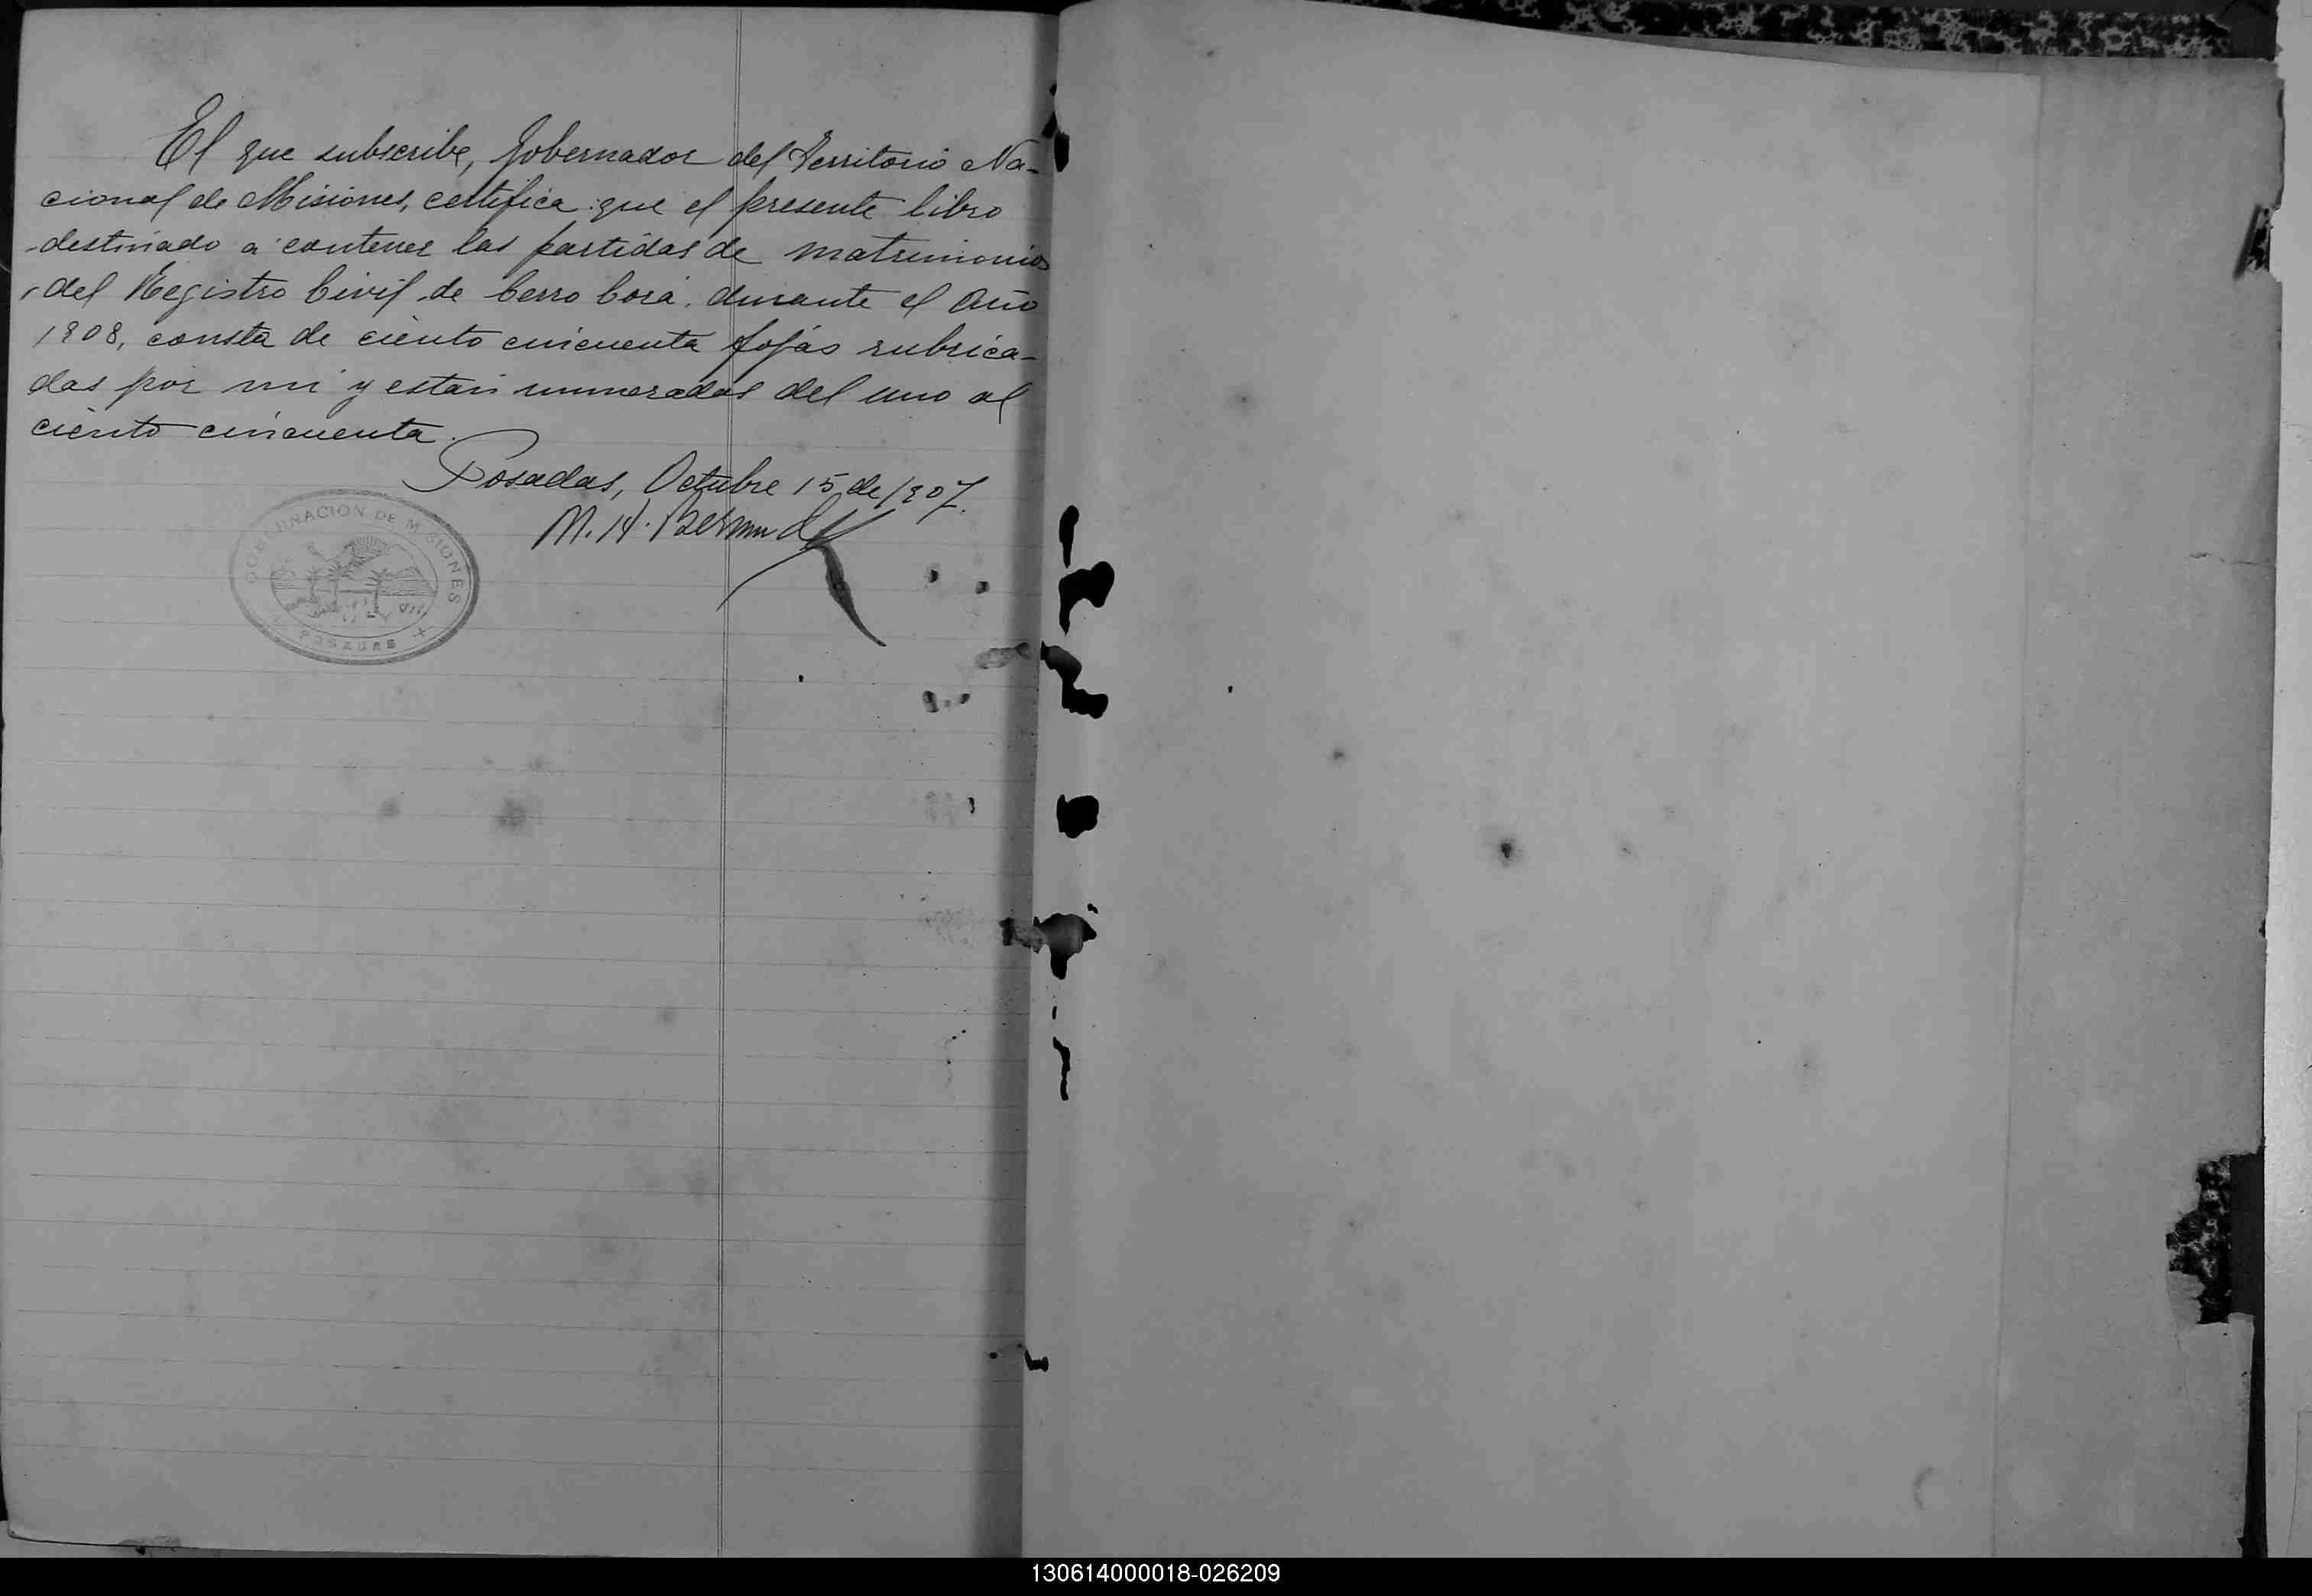 El que subscribe, Gobernador del Territorio Na-
cional de Misiones, certifica que el presente libro
destinado a contener las partidas de matrimonios
del Registro Civil de Cerro Corá, durante el Año
1908, consta de ciento cincuenta fojas rubrica-
das por mi y estan numeradas del uno al
ciento cincuenta.
Posadas, Octubre 15 de 1907.
M. H. Bermudez
GOBERNACION DE MISIONES
POSADAS
130614000018-026209